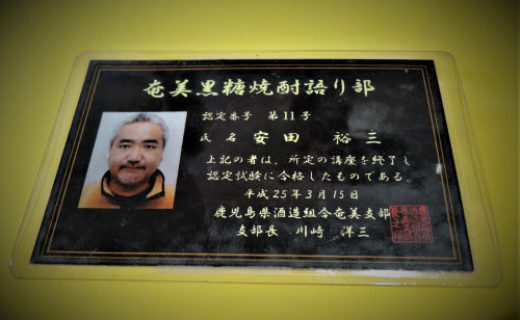 奄美黒糖焼酎語り部
認定番号 第11号
氏名 安田 裕三
上記の者は、所定の講座を終了し
認定試験に合格したものである。
平成25年3月15日
鹿児島県酒造組合奄美支部
支部長 川崎 洋三